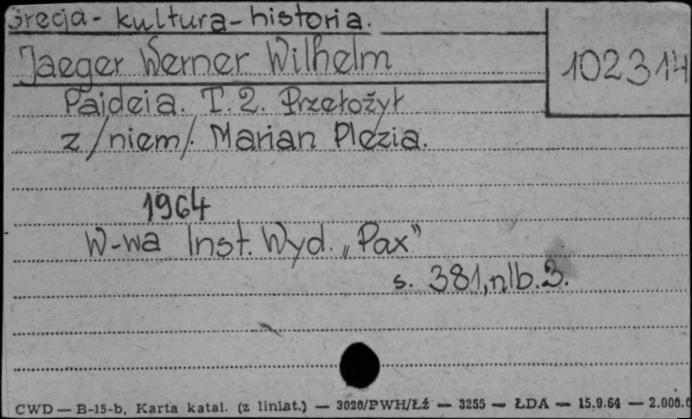 Grecja - kultura - historia.
Jaeger Werner Wilhelm
102314
Pajdeia. T. 2. Przełożył
z /niem/. Marian Plezia.
1964
W-wa Inst. Wyd. „Pax”
s. 381, nlb. 3.
CWD — B-15-b, Karta katal. (z liniat.) — 3020/PWH/Łź — 3255 — ŁDA — 15.9.64 — 2.000.0